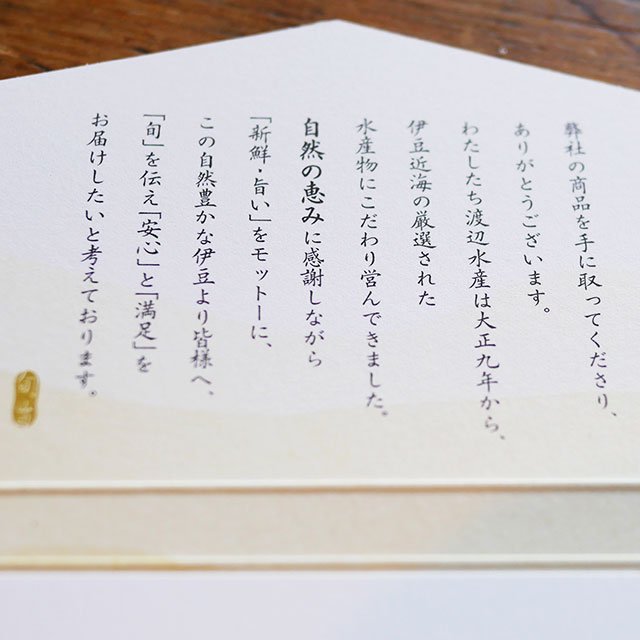 弊社の商品を手に取ってくださり、
ありがとうございます。
わたしたち渡辺水産は大正九年から、
伊豆近海の厳選された
水産物にこだわり営んできました。
自然の恵みに感謝しながら
「新鮮・旨い」をモットーに、
この自然豊かな伊豆より皆様へ、
「旬」を伝え「安心」と「満足」を
お届けしたいと考えております。